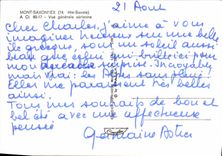 MONT-SAXONNEX (74. Hte-Savoie)
A Ct 80-17 - Vue générale aérienne
21 Août
Cher Charles, j'aime à vous
imaginer heureux sur une belle
île grecque, sous un soleil aussi
beau que celui qui brille ici pour
mon surprise. Incroyable
mais vrai : les Alpes sans pluie !
Elles me paraissent très belles
ainsi.
Tous mes souhaits de bon et
bel été, avec une affectueuse
pensée
Germaine